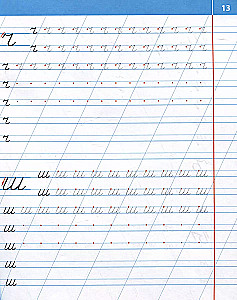 13
ч ч ч ч ч ч ч ч ч ч ч ч ч
ч ч ч ч ч ч ч ч ч ч ч ч ч ч
ч ч ч ч ч ч ч ч ч ч ч ч ч ч ч
ч
ч
ч
ч
ш ш ш ш ш ш ш ш ш ш ш
ш ш ш ш ш ш ш ш ш ш
ш ш ш ш ш ш ш ш ш ш ш ш
ш
ш
ш
ш